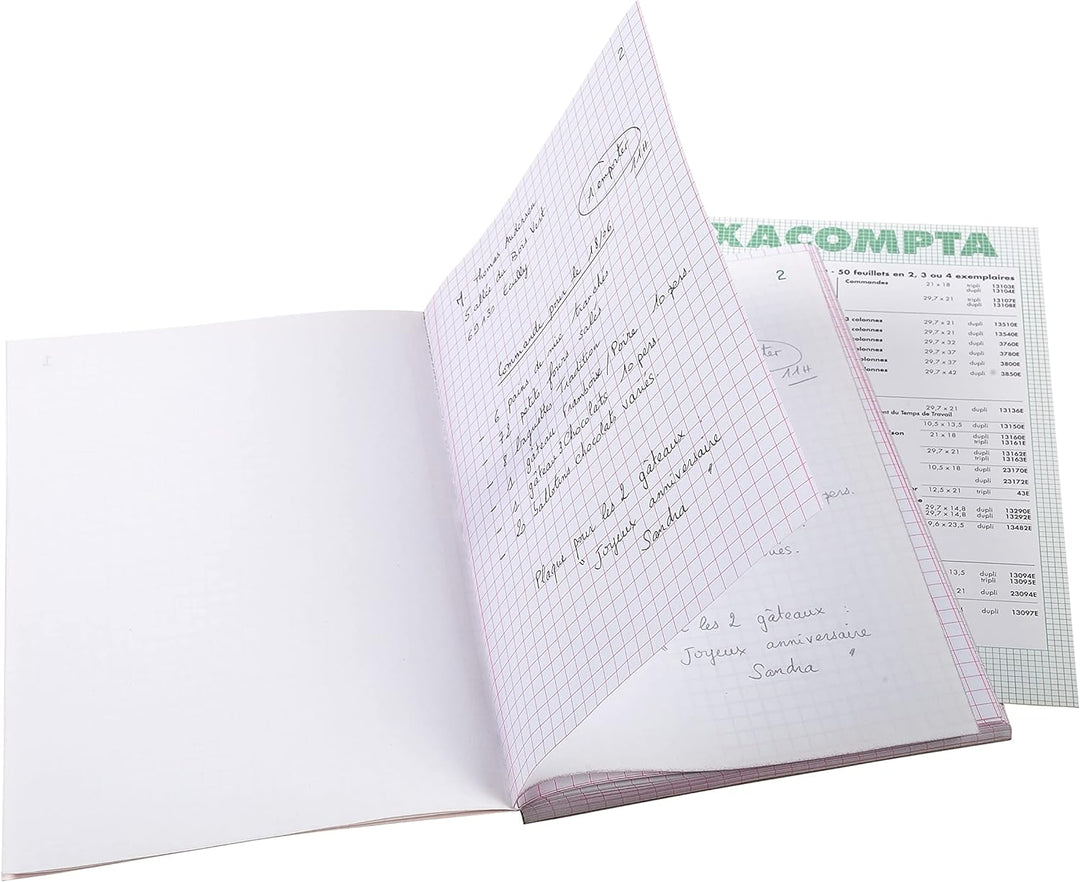 2
à emporter
11H
M. Thomas Andersen
5 allée du Bois Vert
69130 Ecully
Commande pour le 18/06
- 6 pains de mie tranchés
- 72 petits fours salés
- 8 baguettes Tradition
- 1 gâteau Framboise / Poire 10 pers.
- 1 gâteau 3 Chocolats 10 pers.
- 20 ballotins chocolats variés.
Plaque pour les 2 gâteaux
" Joyeux anniversaire
Sandra "
2
porter
11H
pers.
les 2 gâteaux :
" Joyeux anniversaire
Sandra "
XACOMPTA
- 50 feuillets en 2, 3 ou 4 exemplaires
Commandes 21 x 18 tripli 13103E
dupli 13104E
29,7 x 21 tripli 13107E
dupli 13108E
3 colonnes 29,7 x 21 dupli 13510E
colonnes 29,7 x 21 dupli 13540E
colonnes 29,7 x 32 dupli 3760E
colonnes 29,7 x 37 dupli 3780E
colonnes 29,7 x 37 dupli 3800E
colonnes 29,7 x 42 dupli 3850E
29,7 x 21 dupli 13136E
du Temps de Travail
10,5 x 13,5 dupli 13150E
21 x 18 dupli 13160E
tripli 13161E
29,7 x 21 dupli 13162E
tripli 13163E
10,5 x 18 dupli 23170E
dupli 23172E
12,5 x 21 tripli 43E
29,7 x 14,8 dupli 13290E
29,7 x 14,8 dupli 13292E
9,6 x 23,5 dupli 13482E
13,5 dupli 13094E
tripli 13095E
21 dupli 23094E
dupli 13097E
1